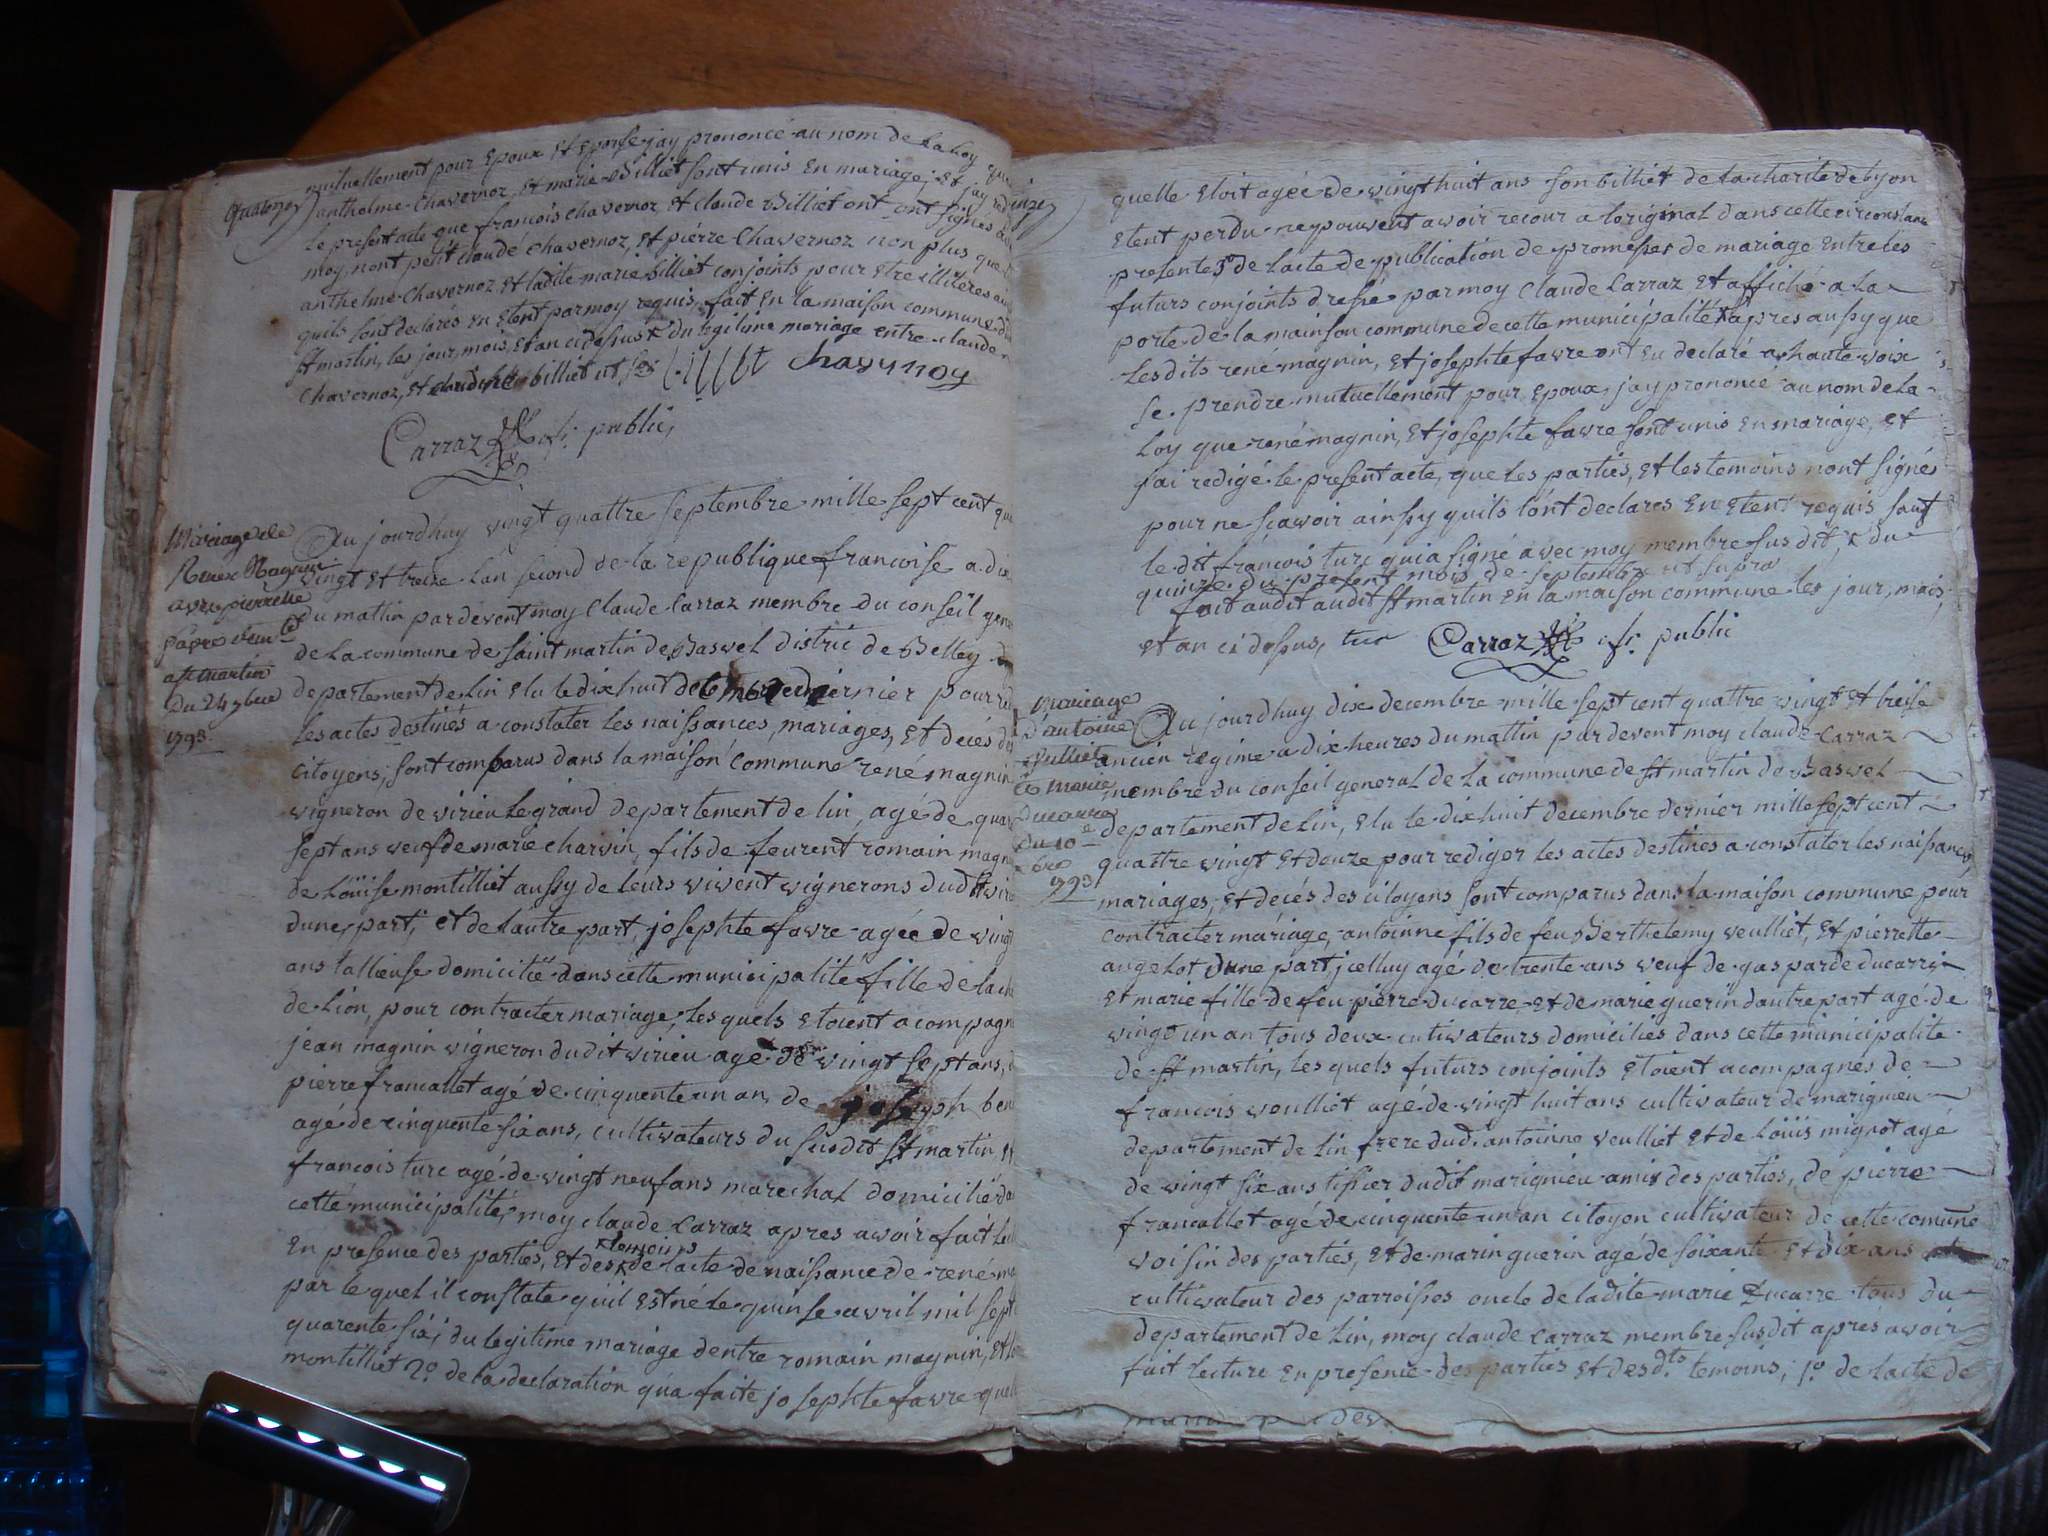 mutuellement pour Epoux Et Epouse jay prononcé au nom de la loy que
quatorze
anthelme chavernoz, Et marie Billiet sont unis En mariage; et jay
le present acte que francois chavernoz Et claude Billiet ont ont signés
moy, nont petit claude chavernoz, Et pierre Chavernoz non plus que
anthelme chavernoz Et ladite marie billiet conjoints pour Etre illiteres
quils sont declarés En Etent par moy requis, fait En la maison commune
St martin, les jour, mois, Et an ci dessus x du legitime mariage entre claude
chavernoz, Et billiet ut chavernoy
Carraz of. public,
Mariage de
Renex Magnin
avec pierrette
favre
a st martin
du 24 7bre
1793.
Au jourdhuy vingt quattre septembre mille sept cent
vingt Et treize Lan second de la republique francoise a dix
du mattin pardevent moy Claude Carraz membre du conseil gene
de La commune de saint martin de Bavel distric de Belley
departement de Lin Elu le dix huit decembre dernier pour
Les actes destinés a constater les naissances, mariages, Et decés des
citoyens; sont comparus dans la maison commune rené magnin
vigneron de virieu le grand departement de lin, agé de
sept ans veuf de marie charvin, fils de feu romain
de Loüise montilliet aussy de leurs vivent vignerons dudit
dune part, et de lautre part, josephte favre agée de vingt
ans tallieuse domiciliée dans cette municipalité fille de la
de Lion, pour contracter mariage; Les quels Etoient acompagn
jean magnin vigneron dudit virieu agé de vingt sept ans,
pierre francallet agé de cinquente un an, de joseph
agé de cinquente six ans, cultivateurs du susdit St martin Et
francois turc agé de vingt neuf ans marechal domicilié
cette municipalité, moy claude Carraz apres avoir fait
En presence des parties, Et des x temoins de lacte de naissance de rené
par le quel il constate quil Est né le quinse avril mil sept
quarente six, du legitime mariage dentre romain magnin, Et
montilliet 2º. de la declaration qua faite josephte favre
quelle Etoit agée de vingt huit ans son billiet de la charité de Lyon
Etent perdu ne pouvent avoir recour a loriginal dans cette circonstance
presente 3º de lacte de publication de promesses de mariage Entre les
futurs conjoints dressé par moy Claude Carraz Et affiché a la
porte de la mainson commune de cette municipalité x apres aussy que
Lesdits rené magnin, Et josephte favre ont Eu declaré a haute voix
se prendre mutuellement pour Epoux, jay prononcé au nom de la
Loy que rené magnin, Et josephte favre sont unis En mariage, Et
jai redigé le present acte, que Les parties, Et les temoins nont signé
pour ne scavoir ainsy quils lont declares En Etent requis sauf
le dit francois turc qui a signé avec moy membre susdit, x du
quinze du present mois de septembre ut supra
fait audit audit St martin En la maison commune les jour, mois,
Et an ci dessus, turc Carraz of. public
mariage
dantoine
vulliet
Et marie
Ducarre
du 10
bre
1793
Au jourdhuy dix decembre mille sept cent quattre vingt Et treise
ancien regime a dix heures du mattin pardevent moy claude Carraz
membre du conseil general de La commune de St martin de Bavel
departement de Lin, Elu le dix huit decembre dernier mille sept cent
quattre vingt Et douze pour rediger les actes destines a constater les naissances,
mariages, Et decés des citoyens sont comparus dans la maison commune pour
contracter mariage, antoinne fils de feu Berthelemy veulliet, Et pierrette
angelot dune part jcelluy agé de trente ans veuf de gasparde ducarre
Et marie fille de feu pierre ducarre Et de marie guerin dautre part agé de
vingt un an tous deux cutivateurs domicilies dans cette municipalite
de St martin, les quels futurs conjoints Etoient acompagnés de
francois voulliet agé de vingt huit ans cultivateur de marignieu
departement de Lin frere dud. antoinne veulliet Et de Loüis mignot agé
de vingt six ans tissier dudit marignieu amis des parties, de pierre
francallet agé de cinquente un an citoyen cultivateur de cette comune
voisin des parties, Et de marin guerin agé de soixante Et dix ans
cultivateur des parroisses oncle de ladite marie Ducarre tous du
departement de Lin, moy claude Carraz membre susdit apres avoir
fait lecture En presence des parties Et des dts temoins, 1º de lacte de